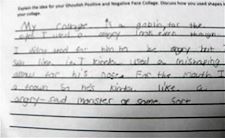 Explain the idea for your Ghoulish Positive and Negative Face Collage. Discuss how you used shapes
your collage.
My collage is a goblin, for the
I used a angry look even though
I didn't want for him to be angry but
like I kinda used a
for his nose. For the mouth I
a frown so he's kinda like a
angry-sad monster of some sort